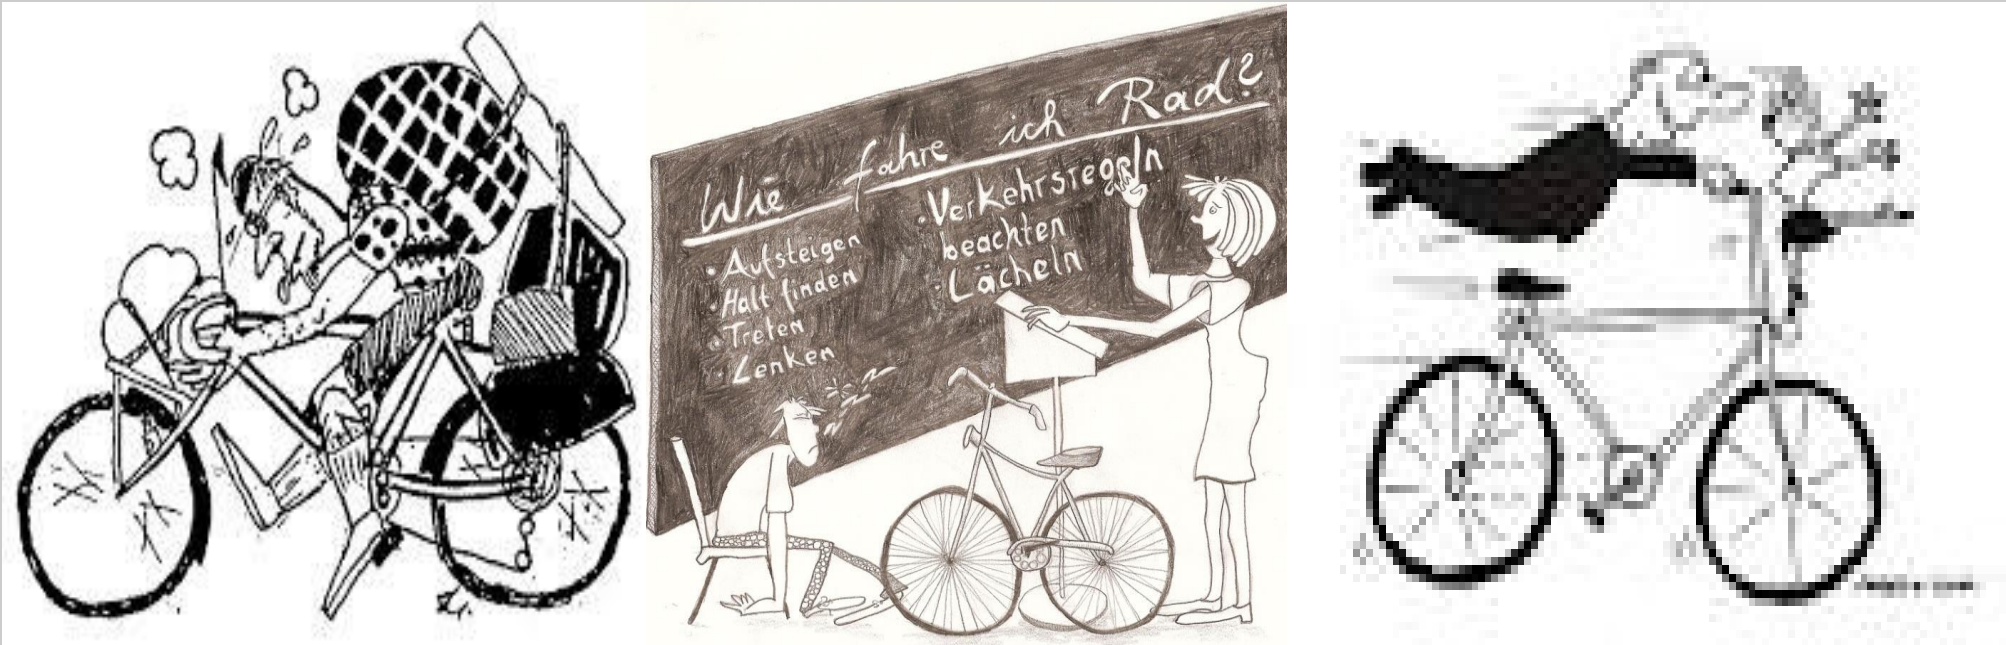 Wie fahre ich Rad?
· Aufsteigen
· Halt finden
· Treten
· Lenken
· Verkehrsregeln
beachten
· Lächeln